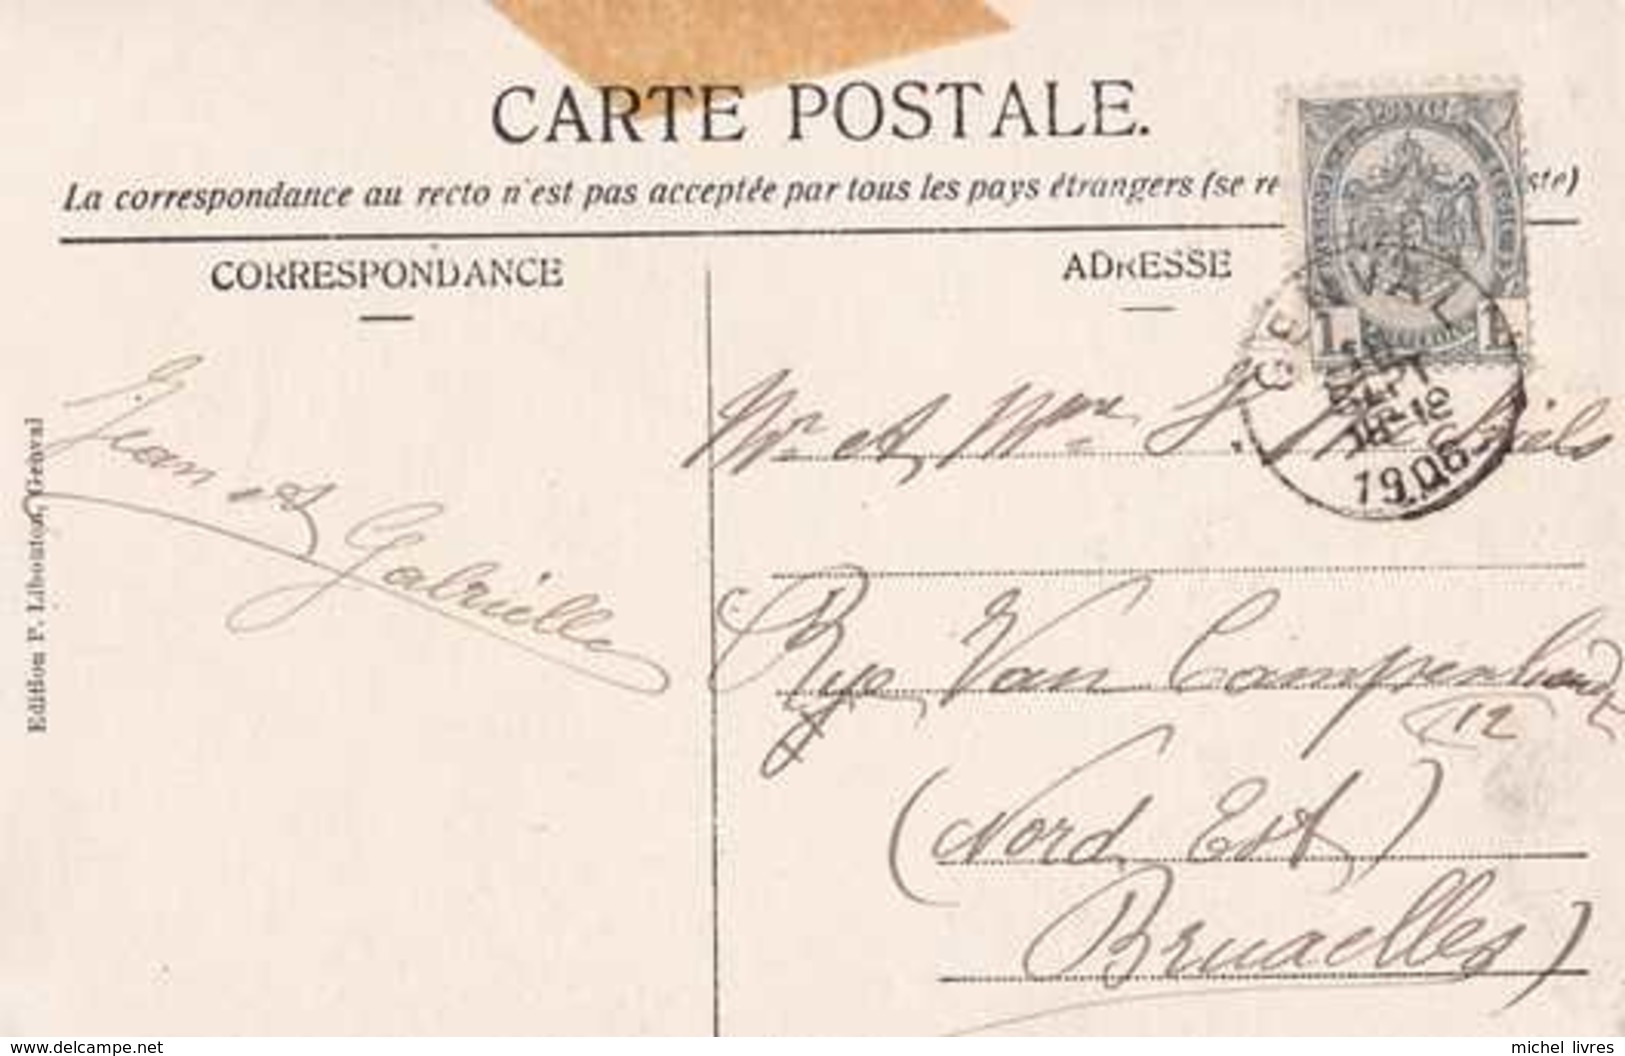 CARTE POSTALE.
La correspondance au recto n'est pas acceptée par tous les pays étrangers (se re ste)
CORRESPONDANCE
ADRESSE
Jean et Gabrielle
Edition P. Libouton, Genval
1 1
GENVAL
SEPT
18-19
1906
Mr et Mme J.
Rue Van Campenhout
12
(Nord Est)
Bruxelles)
www.delcampe.net
michel_livres